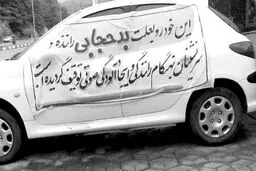 این خودرو بعلت بدحجابی راننده و
سرنشینان هنگام رانندگی و ایجاد آلودگی صوتی توقیف گردیده است